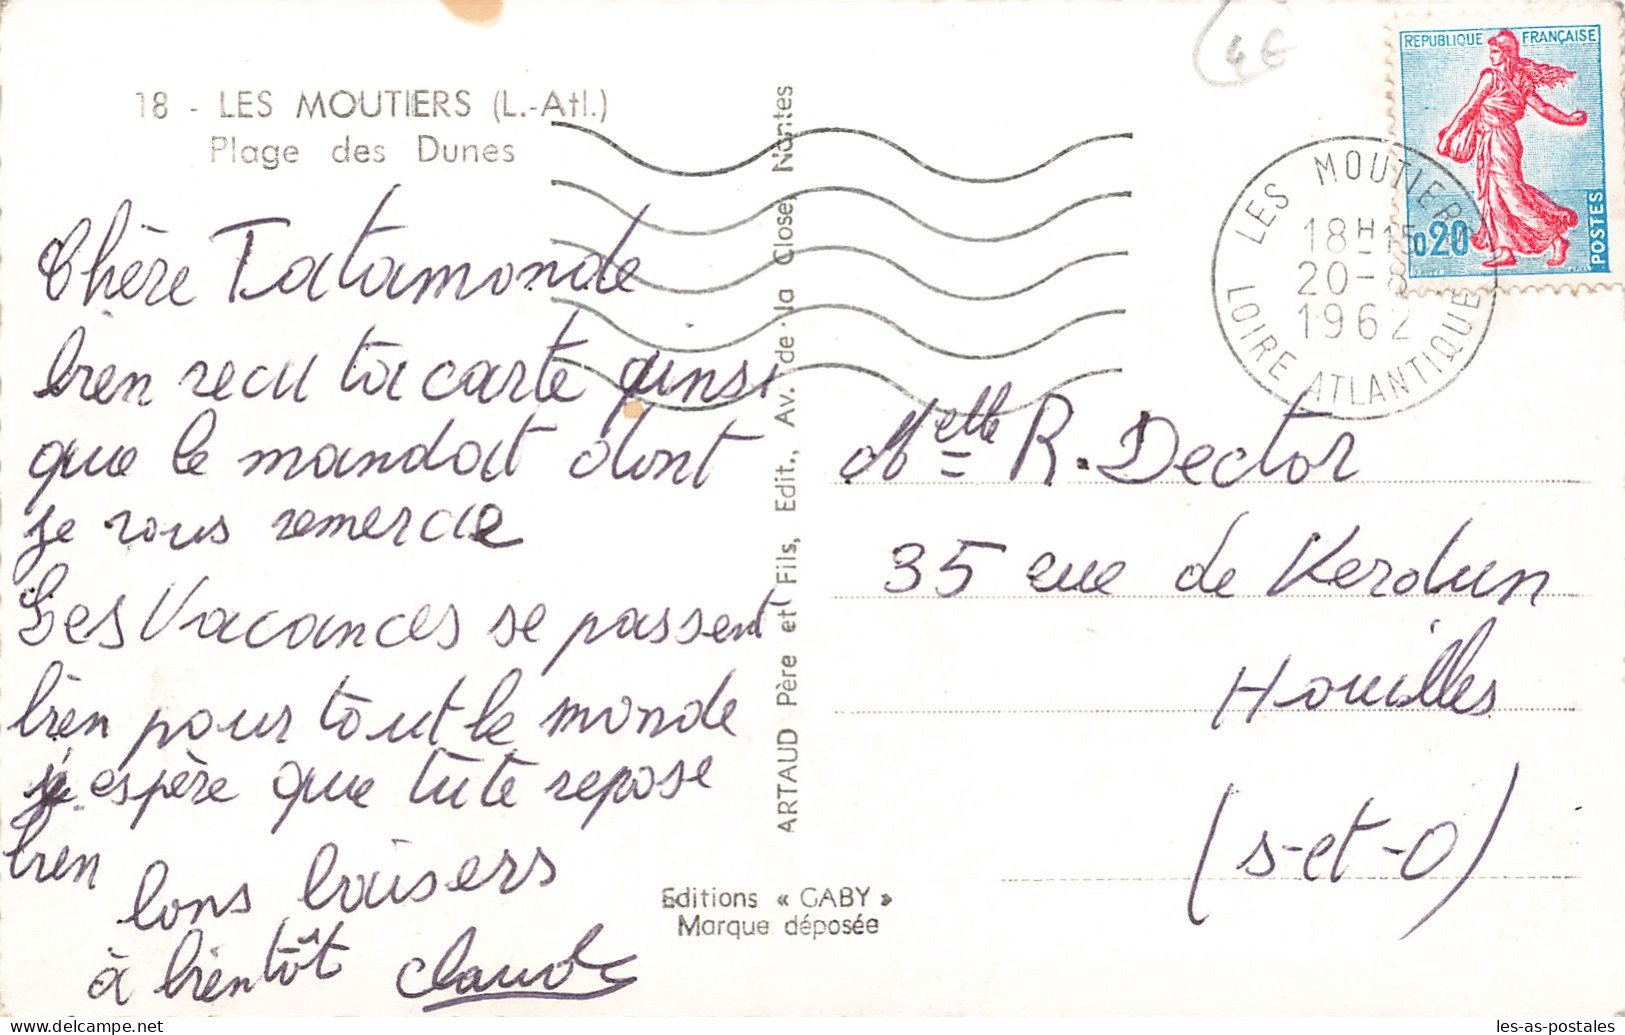 18 - LES MOUTIERS (L.-Atl.)
Plage des Dunes
Chère Tatamonde
bien recu ta carte ainsi
que le mandat dont
je vous remercie
Les Vacances se passent
bien pour tout le monde
j'espère que tu te repose
bien
bons baisers
à bientôt Claude
ARTAUD Père et Fils, Edit., Av. de la Close, Nantes
Editions « GABY »
Marque déposée
4€
REPUBLIQUE FRANÇAISE
0,20
POSTES
LES MOUTIERS
18H15
20-8
1962
LOIRE ATLANTIQUE
Melle R. Dector
35 rue de Verdun
Houilles
(S-et-O)
les-as-postales